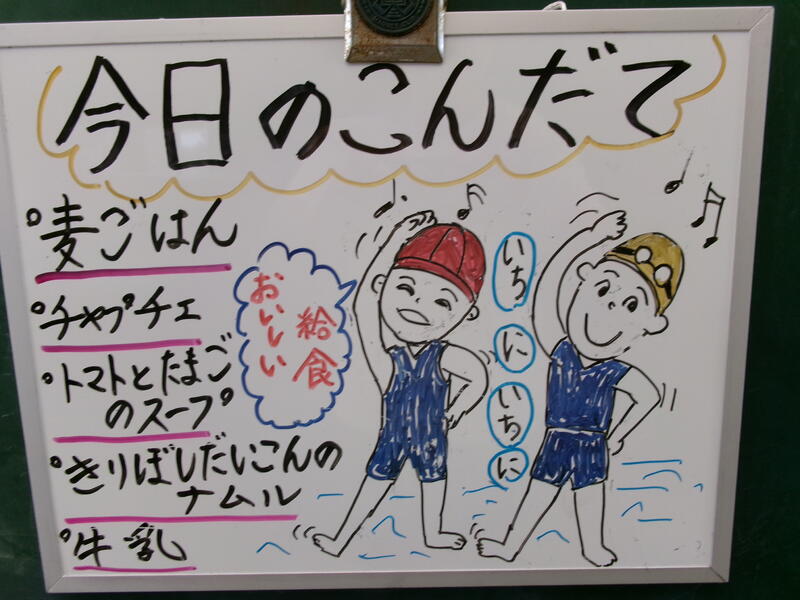 今日のこんだて
麦ごはん
チャプチェ
トマトとたまご
のスープ
きりぼしだいこんの
ナムル
牛乳
給食
おいしい
いち
に
いち
に